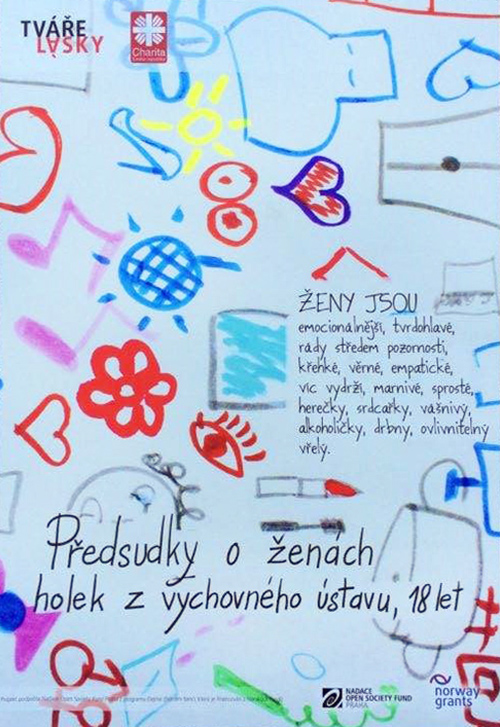 TVÁŘE
LÁSKY
Charita
Česká republika
ŽENY JSOU
emocionálnější, tvrdohlavé,
rády středem pozornosti,
křehké, věrné, empatické,
víc vydrží, marnivé, sprosté,
herečky, srdcařky, vášnivý,
alkoholičky, drbny, ovlivnitelný
vřelý.
Předsudky o ženách
holek z výchovného ústavu, 18 let
NADACE
OPEN SOCIETY FUND
PRAHA
norway
grants